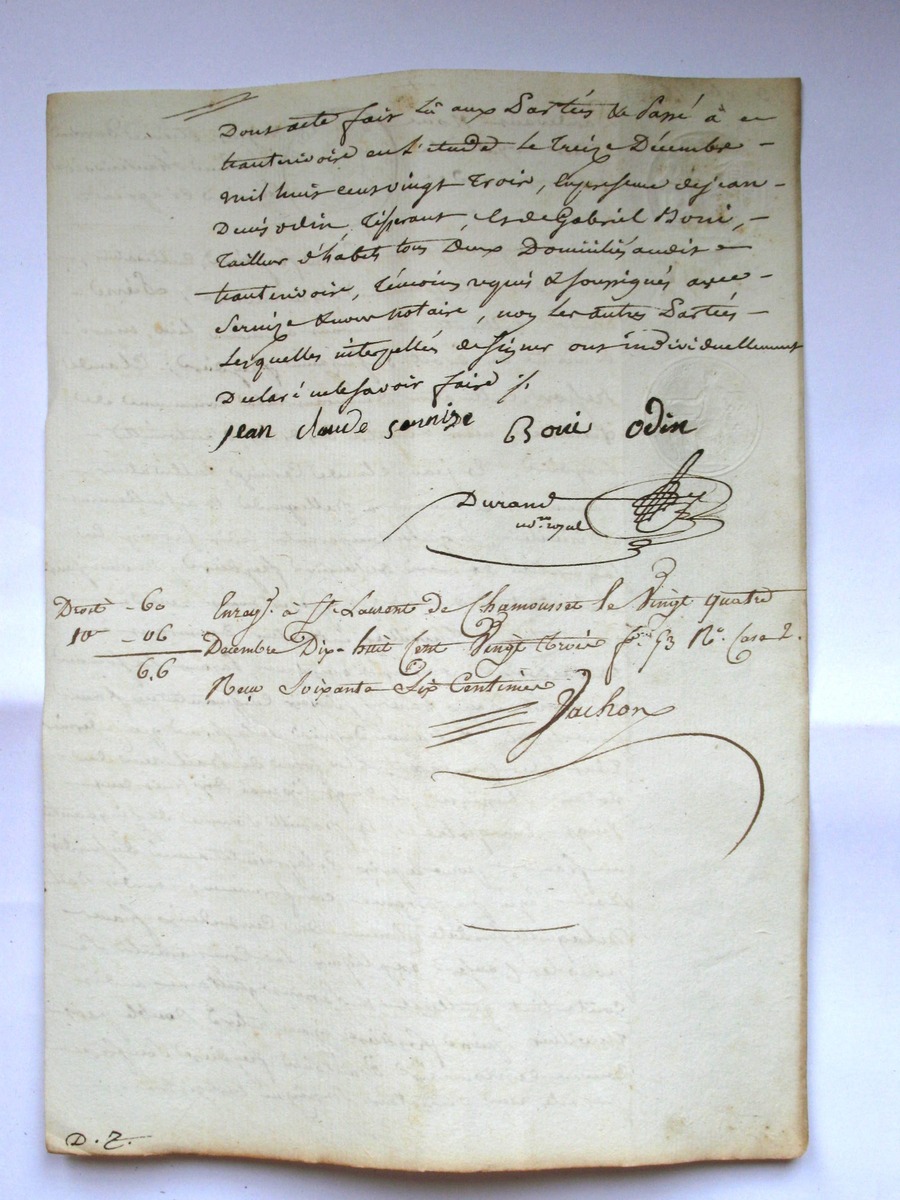 Dont acte fait Lû aux Parties & Passé à
hauterivoire en l'étude Le Treize Décembre
mil huit cent vingt Trois, En presence de jean
Denis odin, Tisserant et de Gabriel Boni,
Tailleur d'habits tous Deux Domiciliés audit
hauterivoire, Témoins requis & soussignés avec
Sernize & nous notaire, non Les autres Parties
Lesquelles interpellés de signer ont individuellement
Déclaré ne le savoir faire
jean claude sernize Boni odin
Durand
n.re royal
Droit - 60 Enreg. à St. Laurent de Chamousset le Vingt quatre
10e - 06 Decembre Dix-huit Cent Vingt trois f.° 53 R.° Case 2.
66 Reçu Soixante Six Centimes
Jachon
D. Z.